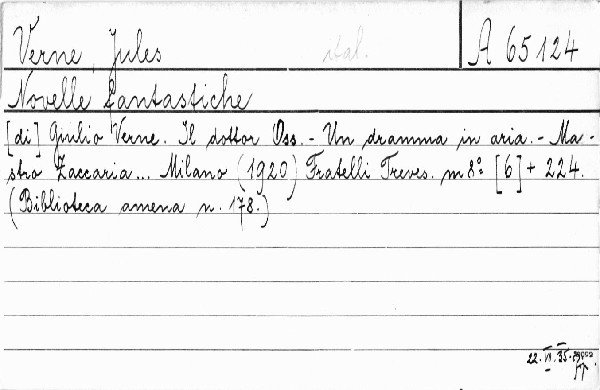 Verne, Jules ital. A 65124
Novelle fantastiche
[di] Giulio Verne. Il dottor Oss. - Un dramma in aria. - Ma-
stro Zaccaria... Milano (1920) Fratelli Treves. m 8º [6] + 224.
(Biblioteca amena n. 178.)
22. VI. 35.